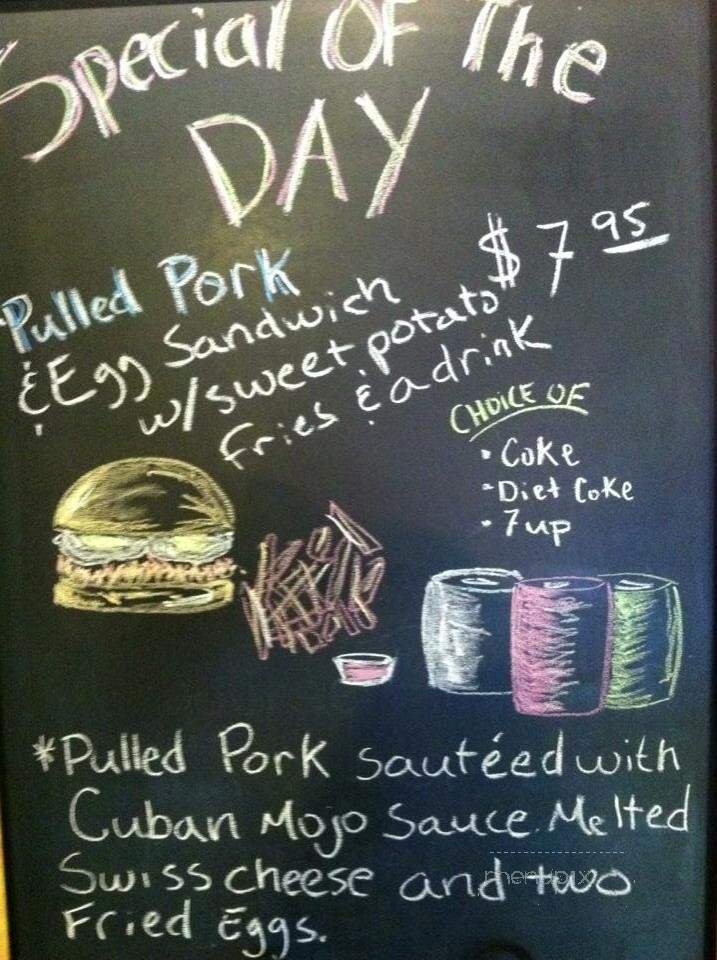 Special Of The
DAY
$7 95
Pulled Pork
& Egg Sandwich
w/sweet potato
fries & a drink
CHOICE OF
• Coke
- Diet Coke
• 7up
*Pulled Pork sautéed with
Cuban Mojo Sauce. Melted
Swiss cheese and two
Fried Eggs.
menupix